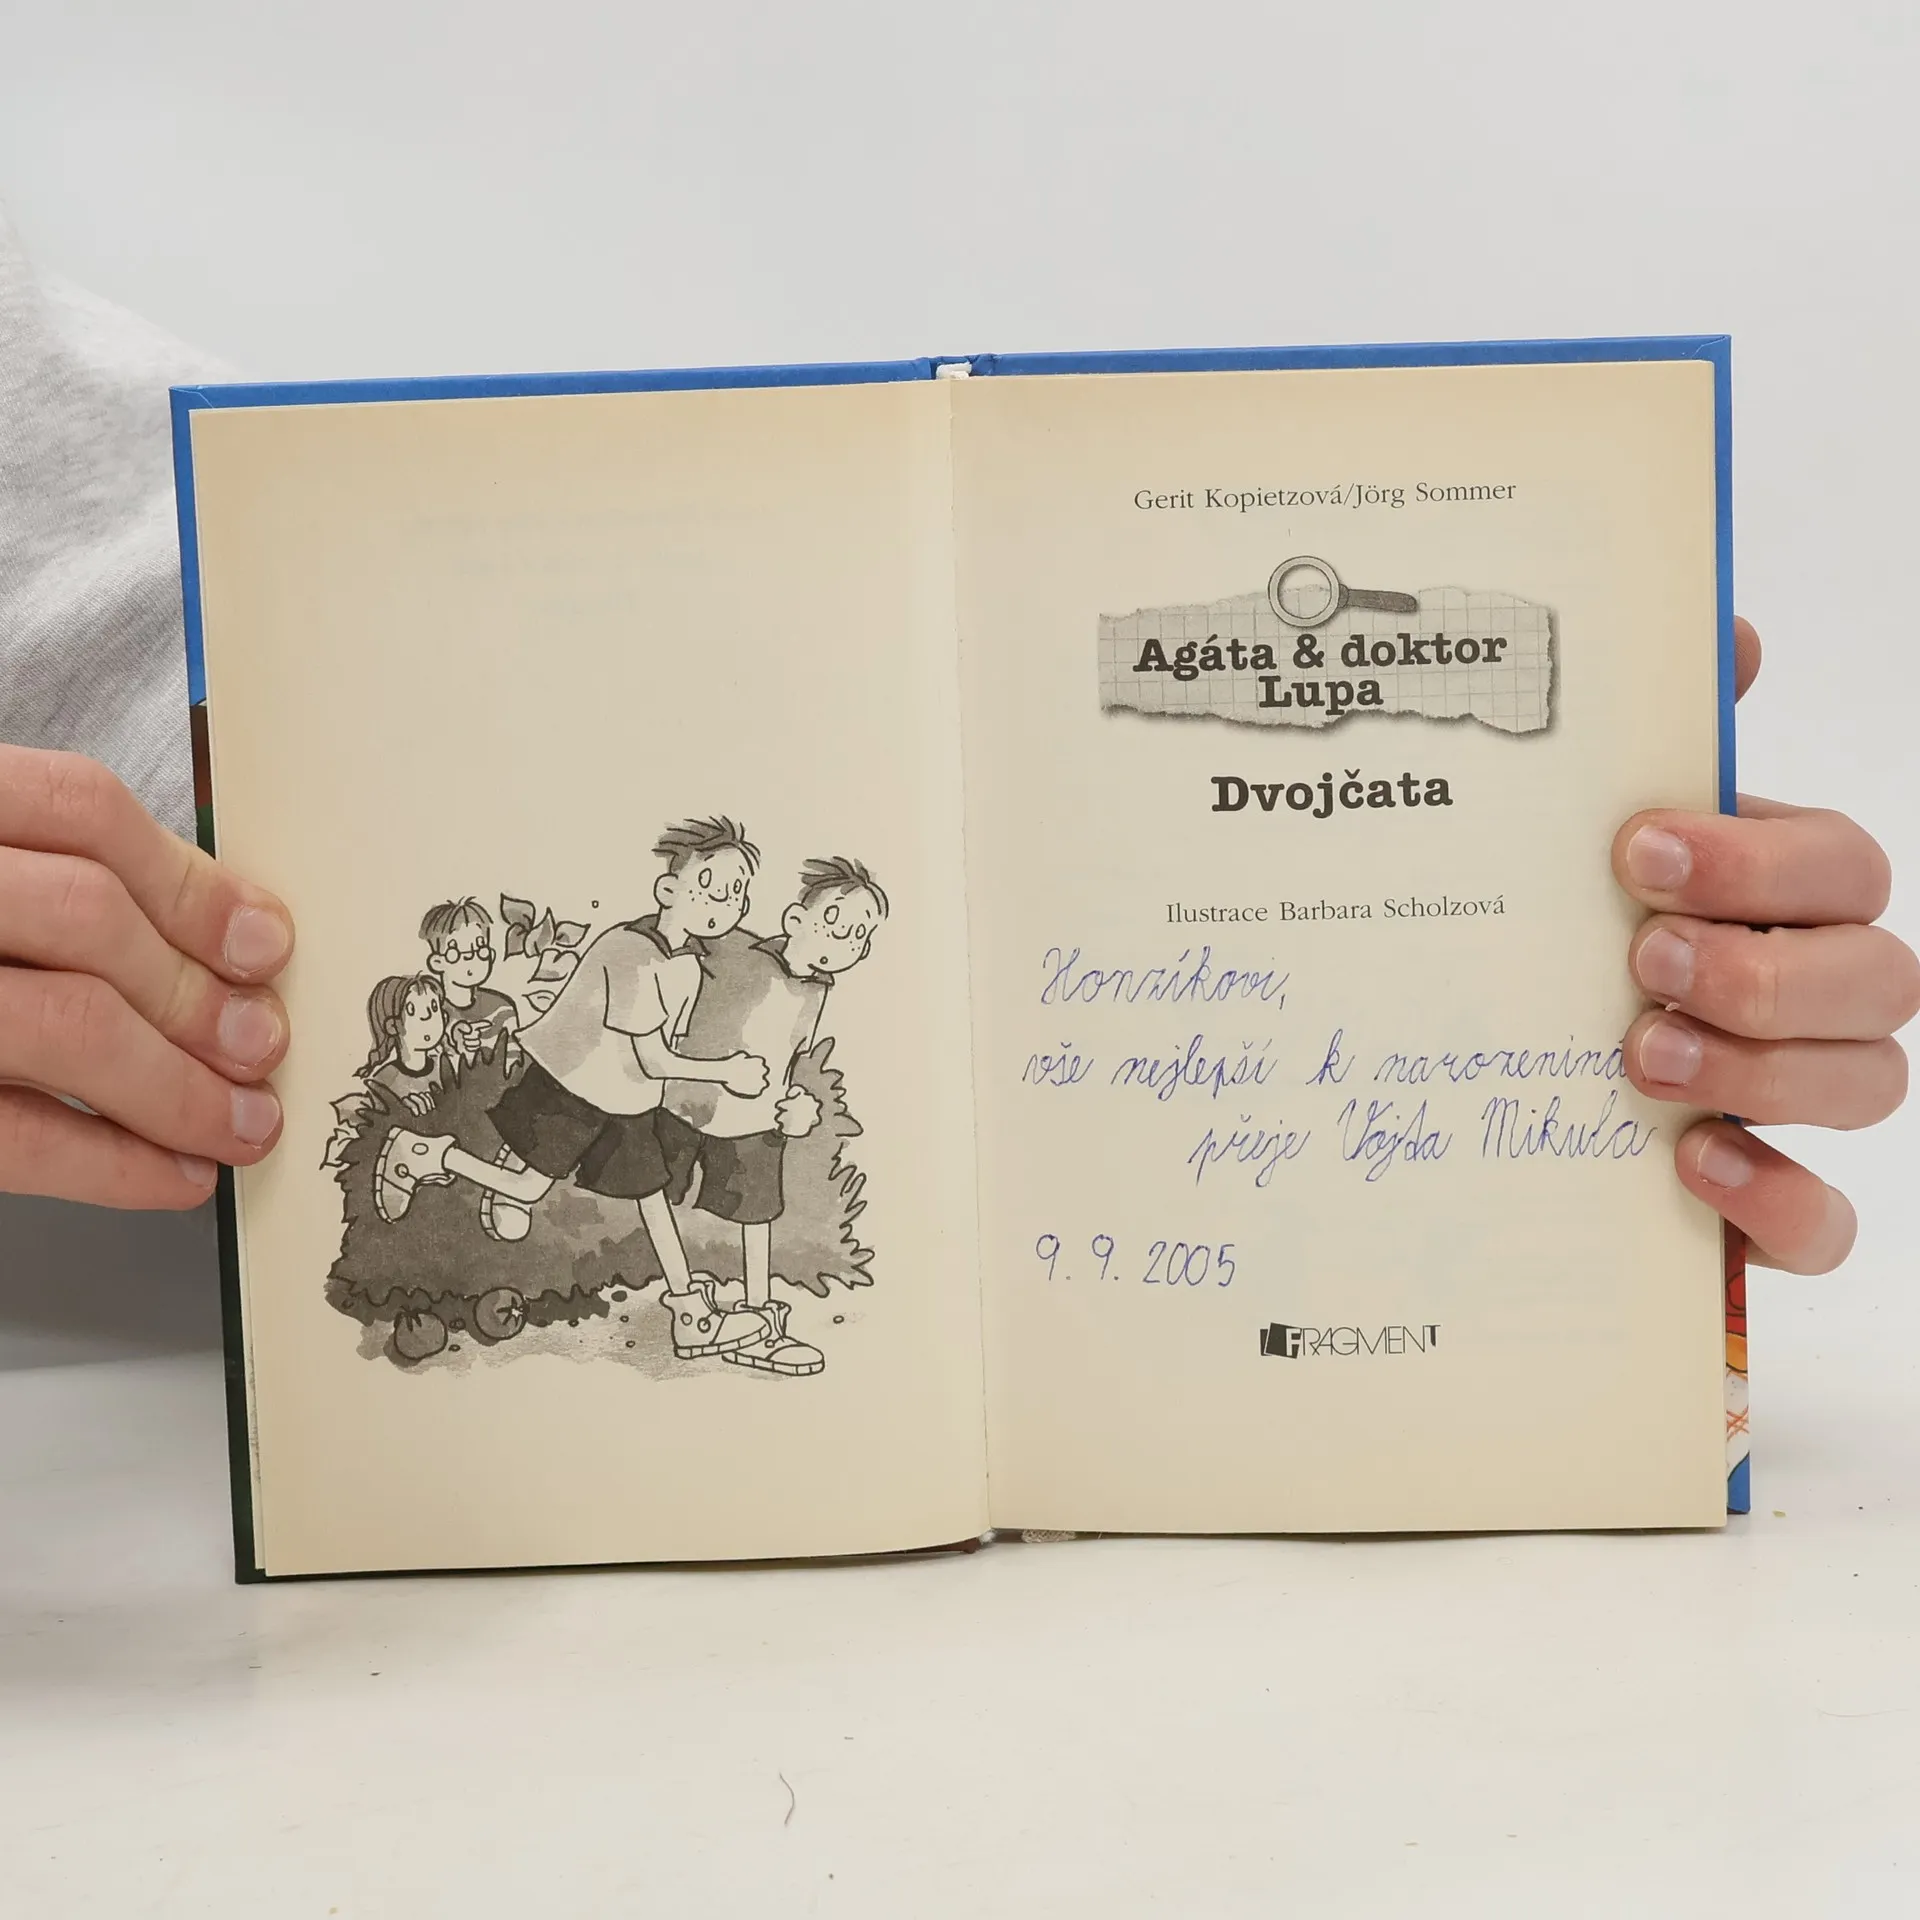 Gerit Kopietzová/Jörg Sommer
Agáta & doktor
Lupa
Dvojčata
Ilustrace Barbara Scholzová
Honzíkovi,
vše nejlepší k narozeniná
přeje Vojta Mikula
9. 9. 2005
FRAGMENT